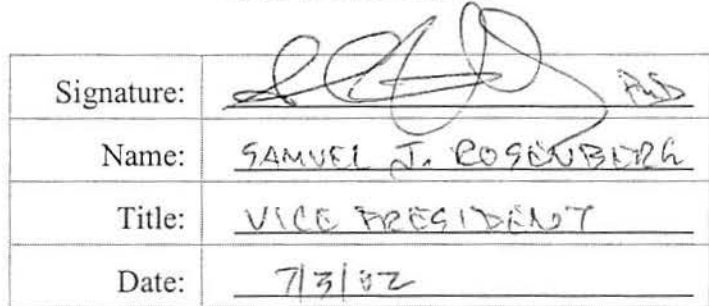 Signature:
Name: SAMUEL J. ROSENBERG
Title: VICE PRESIDENT
Date: 7/3/02